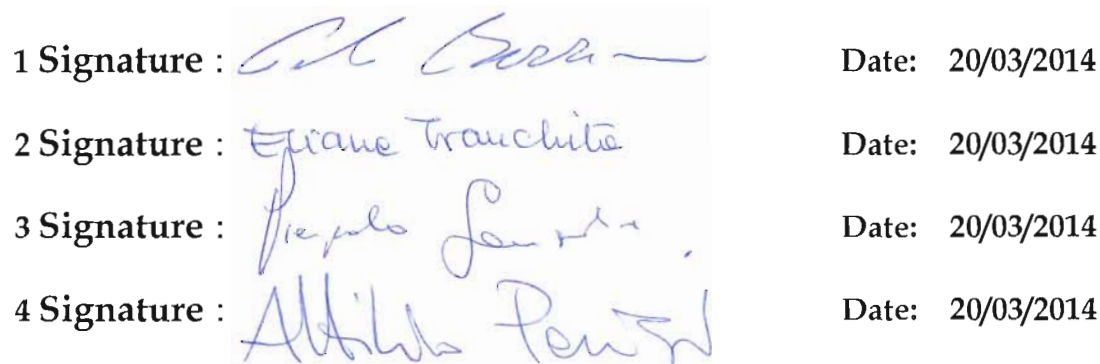 1 Signature : Date: 20/03/2014
2 Signature : Eliane Tranchita Date: 20/03/2014
3 Signature : Date: 20/03/2014
4 Signature : Attilio Date: 20/03/2014